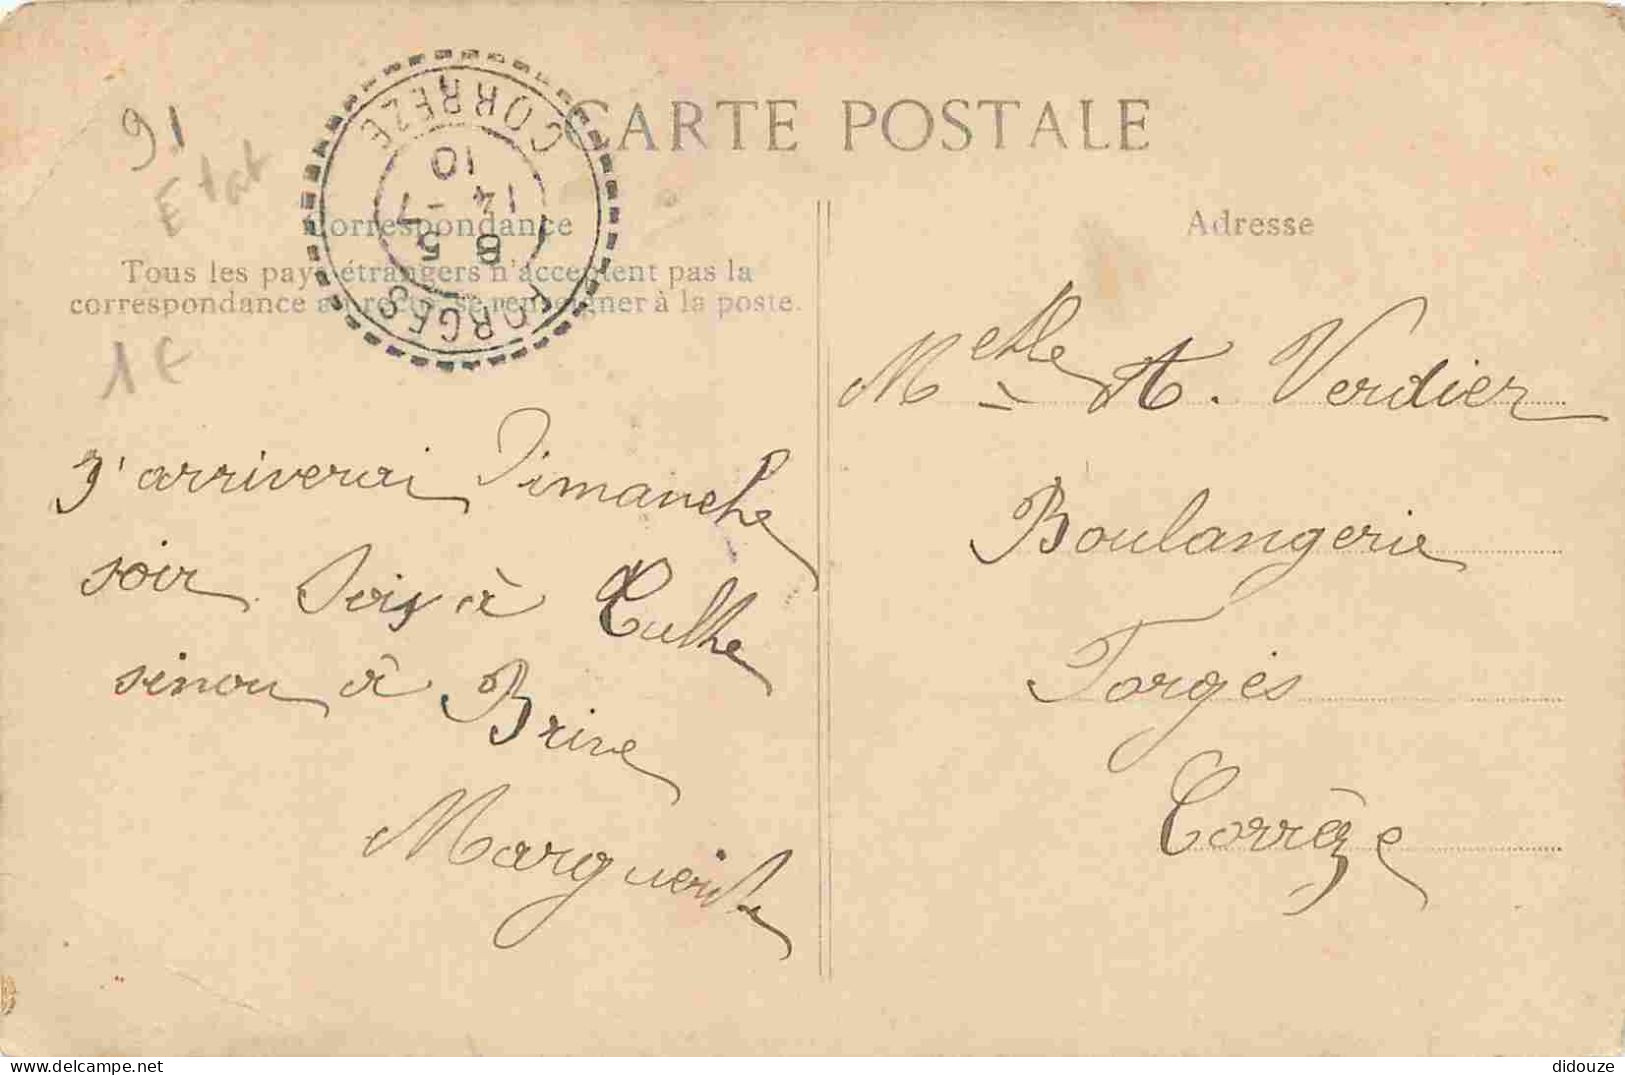 CARTE POSTALE
91
Etat
FORGES
CORREZE
8 5
14 -7
10
Correspondance
Tous les pays étrangers n'acceptent pas la
correspondance au recto, se renseigner à la poste.
1€
J'arriverai Dimanche
soir Sois à Tulle
sinon à Brive
Marguerite
Adresse
Melle A. Verdier
Boulangerie
Forgès
Corrèze
didouze